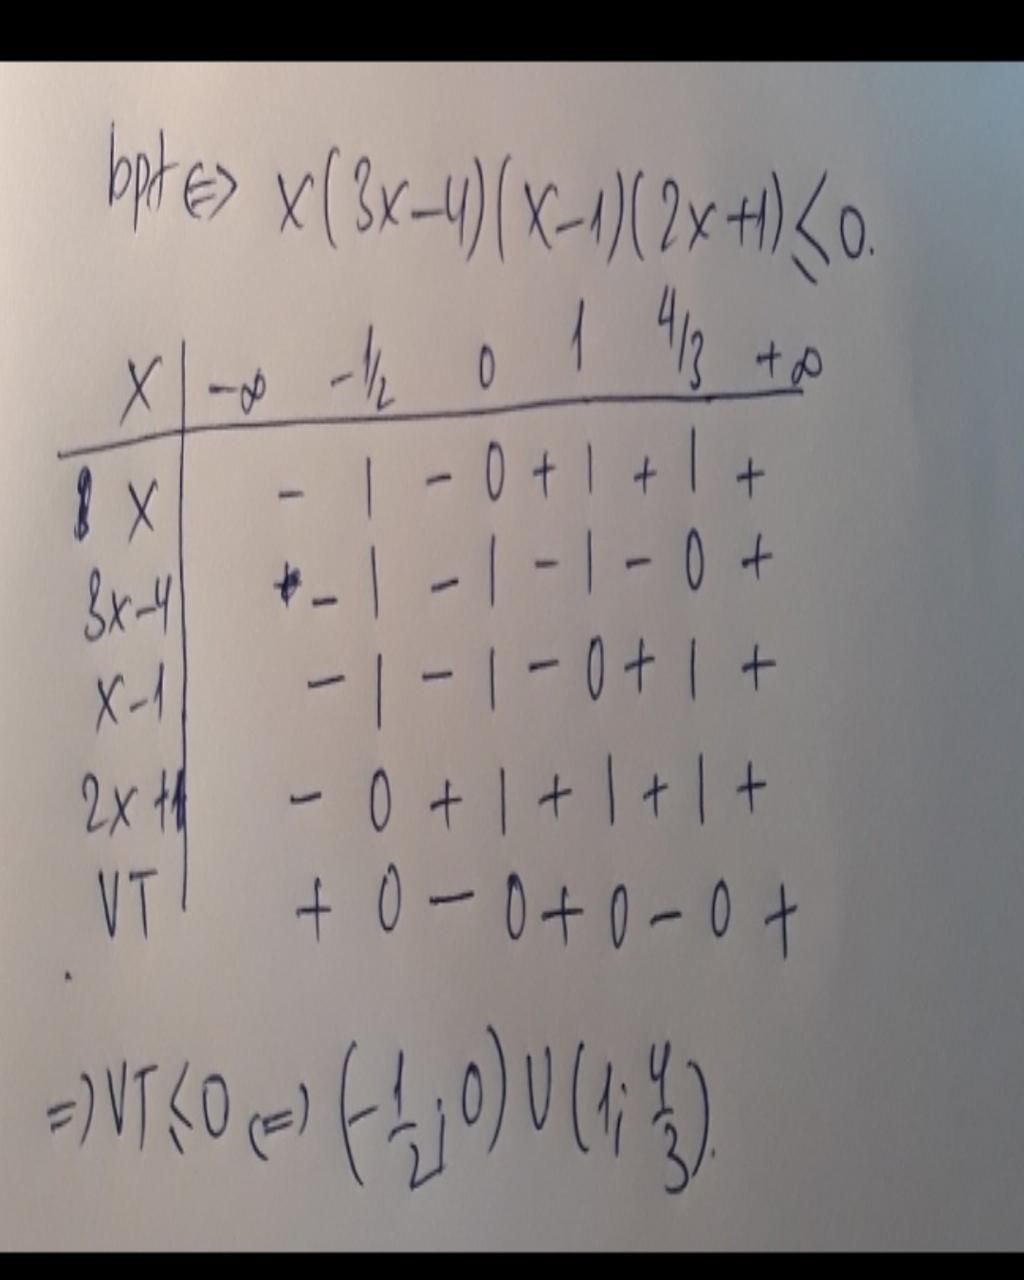 bpt ⇔ x(3x-4)(x-1)(2x+1)≤0.
x | -∞ -1/2 0 1 4/3 +∞
x | - | - 0 + | + | +
3x-4 | - | - | - | - 0 +
x-1 | - | - | - 0 + | +
2x+1 | - 0 + | + | + | +
VT | + 0 - 0 + 0 - 0 +
⇒ VT ≤ 0 ⇔ (-1/2; 0) U (1; 4/3).